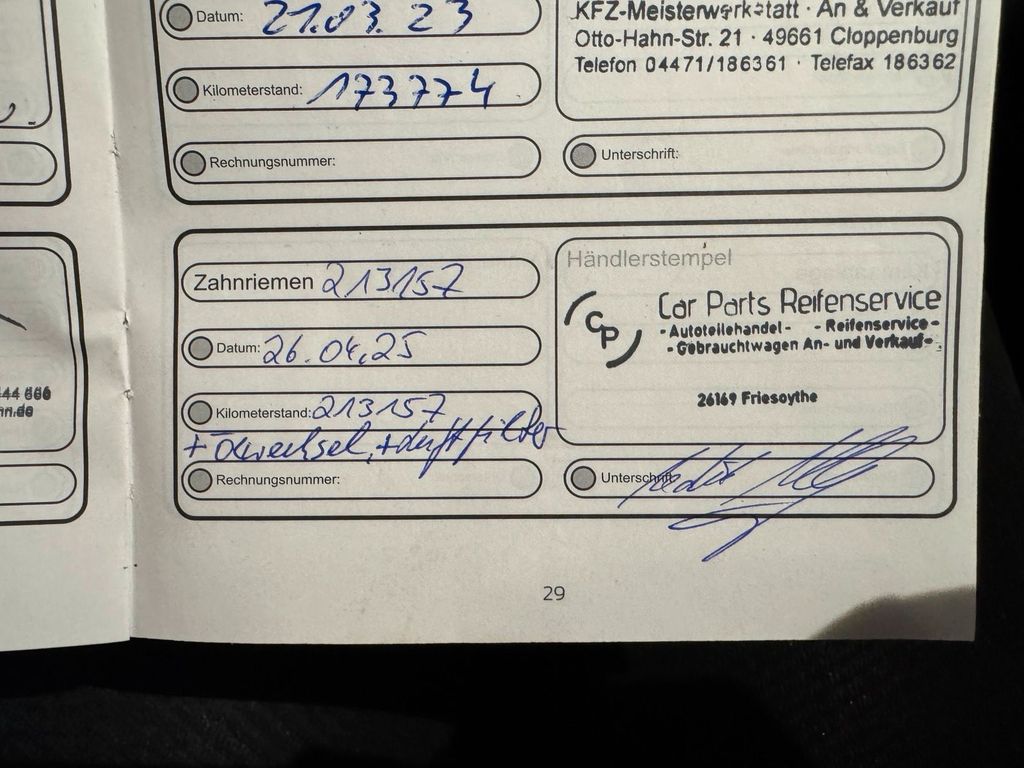 Datum: 21.03.23
KFZ-Meisterwerkstatt · An & Verkauf
Otto-Hahn-Str. 21 · 49661 Cloppenburg
Telefon 04471/186361 · Telefax 186362
Kilometerstand: 173774
Rechnungsnummer:
Unterschrift:
Zahnriemen 213157
Händlerstempel
CP
Car Parts Reifenservice
- Autoteilehandel - - Reifenservice -
- Gebrauchtwagen An- und Verkauf -
26169 Friesoythe
Datum: 26.04.25
Kilometerstand: 213157
+ Ölwechsel, + Luftfilter
Rechnungsnummer:
Unterschrift:
44 666
nn.de
29